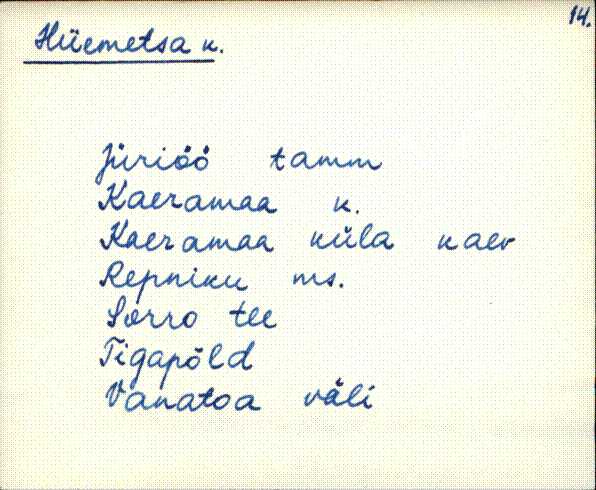 14.
Hüemetsa k.
Jüriöö tamm
Kaeramaa k.
Kaeramaa küla kaev
Repniku ms.
Sorro tee
Tigapõld
Vanatoa väli